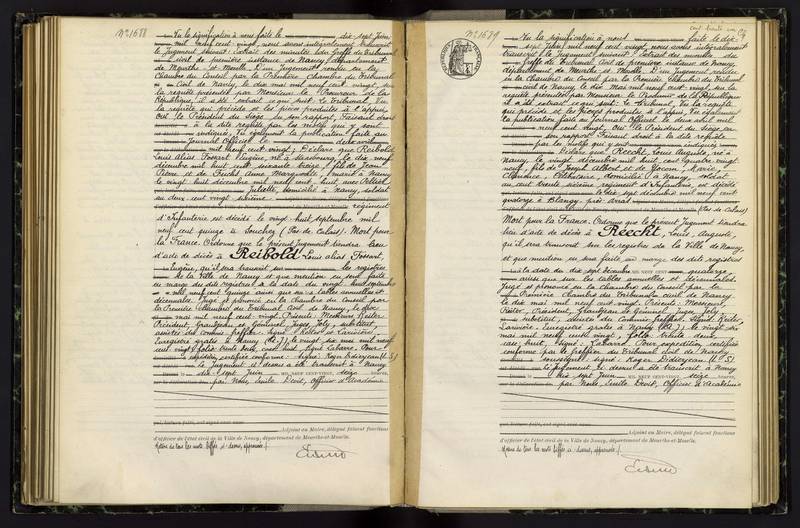 N° 1688
Vu la signification à nous faite le dix sept Juin
mil neuf cent vingt, nous avons intégralement transcrit
le Jugement suivant: Extrait des minutes du Greffe du Tribunal
Civil de première instance de Nancy, département
de Meurthe et Moselle. D'un Jugement rendu en la
Chambre du Conseil par la Première Chambre du Tribunal
Civil de Nancy, le dix mai mil neuf cent vingt, sur
la requête présentée par Monsieur le Procureur de la
République, il a été extrait ce qui suit: Le Tribunal, Vu la
requête qui précède et les pièces produites à l'appui,
Ouï le Président du Siège en son rapport, Faisant droit
à la dite requête par les motifs qui y sont
indiqués, Vu également la publication faite au
Journal Officiel le
mil neuf cent vingt; Déclare que Reibold
Louis alias Fossart Eugène, né à Strasbourg le dix neuf
décembre mil huit cent soixante treize, fils de Jean
Pierre et de Fuchs Anne Marguerite, marié à Nancy
le vingt huit décembre mil neuf cent huit, avec Pellier
Juliette, domicilié à Nancy, soldat
au deux cent vingt sixième régiment
d'Infanterie est décédé le vingt-huit septembre mil
neuf cent quinze à Souchez (Pas de Calais). Mort pour
la France. Ordonne que le présent Jugement tiendra lieu
d'acte de décès à Reibold Louis alias Fossart,
Eugène, qu'il sera transcrit sur les registres
de la Ville de Nancy et que mention en sera faite
en marge des dits registres à la date du vingt huit septembre
mil neuf cent quinze ainsi que sur les tables annuelles et
décennales. Jugé et prononcé en la Chambre du Conseil par
la Première Chambre du Tribunal Civil de Nancy, le dix
mai mil neuf cent vingt, Présents: Messieurs
Président, Grandjean et Géninel, Juges, Joly, substitut,
assistés du commis greffier. Signé:
Enregistré gratis à Nancy (A.J.), le vingt six mai mil neuf
cent vingt, folio trente deux, case huit, Signé Labarre. Pour
expédition, certifiée conforme: Signé: Roger Didierjean (L.S)
Le Jugement ci-dessus a été transcrit à Nancy
le dix sept Juin MIL NEUF CENT VINGT, seize heures,
par Nous, Emile Devit, Officier d'Académie
Adjoint au Maire, délégué faisant fonctions
d'officier de l'état civil de la Ville de Nancy, département de Meurthe-et-Moselle.
Rature de tous les mots biffés ci-dessus, approuvée /.
N° 1689
cent trente un
Vu la signification à nous faite le dix
sept Juin mil neuf cent vingt, nous avons intégralement
transcrit le Jugement suivant: Extrait des minutes du
Greffe du Tribunal Civil de première instance de Nancy,
département de Meurthe et Moselle. D'un Jugement rendu
en la Chambre du Conseil par la Première Chambre du Tribunal
Civil de Nancy, le dix mai mil neuf cent vingt, sur la
requête présentée par Monsieur le Procureur de la République,
il a été extrait ce qui suit: Le Tribunal, Vu la requête
qui précède et les pièces produites à l'appui, Vu également
la publication faite au Journal Officiel le deux avril mil
neuf cent vingt, Ouï le Président du Siège en
son rapport, Faisant droit à la dite requête
par les motifs qui y sont indiqués,
Déclare que Reecht, Louis Auguste, né à
Nancy, le vingt décembre mil huit cent quatre vingt
neuf, fils de Joseph Albert et de Yocom, Marie
Clémence, Célibataire, domicilié à Nancy, soldat
au cent trente sixième régiment d'Infanterie, est décédé
le dix sept décembre mil neuf cent
quatorze à Blangy, près Arras
(Pas de Calais)
Mort pour la France. Ordonne que le présent Jugement tiendra
lieu d'acte de décès à Reecht, Louis, Auguste,
qu'il sera transcrit sur les registres de la Ville de Nancy,
et que mention en sera faite en marge des dits registres
à la date du dix sept décembre MIL NEUF CENT quatorze
ainsi que sur les tables annuelles et décennales.
Jugé et prononcé en la Chambre du Conseil par la
Première Chambre du Tribunal Civil de Nancy
le dix mai mil neuf cent vingt, Présents: Messieurs
Président, Grandjean et Géninel, Juges, Joly,
substitut, assistés du commis greffier. Signé:
Enregistré gratis à Nancy (A.J.) le vingt six
mai mil neuf cent vingt, folio trente deux,
case huit, Signé: Labarre. Pour expédition certifiée
conforme par le greffier du Tribunal Civil de Nancy
soussigné. Signé: Roger Didierjean (L.S)
Le Jugement ci-dessus a été transcrit à Nancy
le dix sept Juin MIL NEUF CENT-VINGT, seize heures,
par Nous, Emile Devit, Officier d'Académie
Adjoint au Maire, délégué faisant fonctions
d'officier de l'état civil de la Ville de Nancy, département de Meurthe-et-Moselle.
Rature de tous les mots biffés ci-dessus, approuvée /.